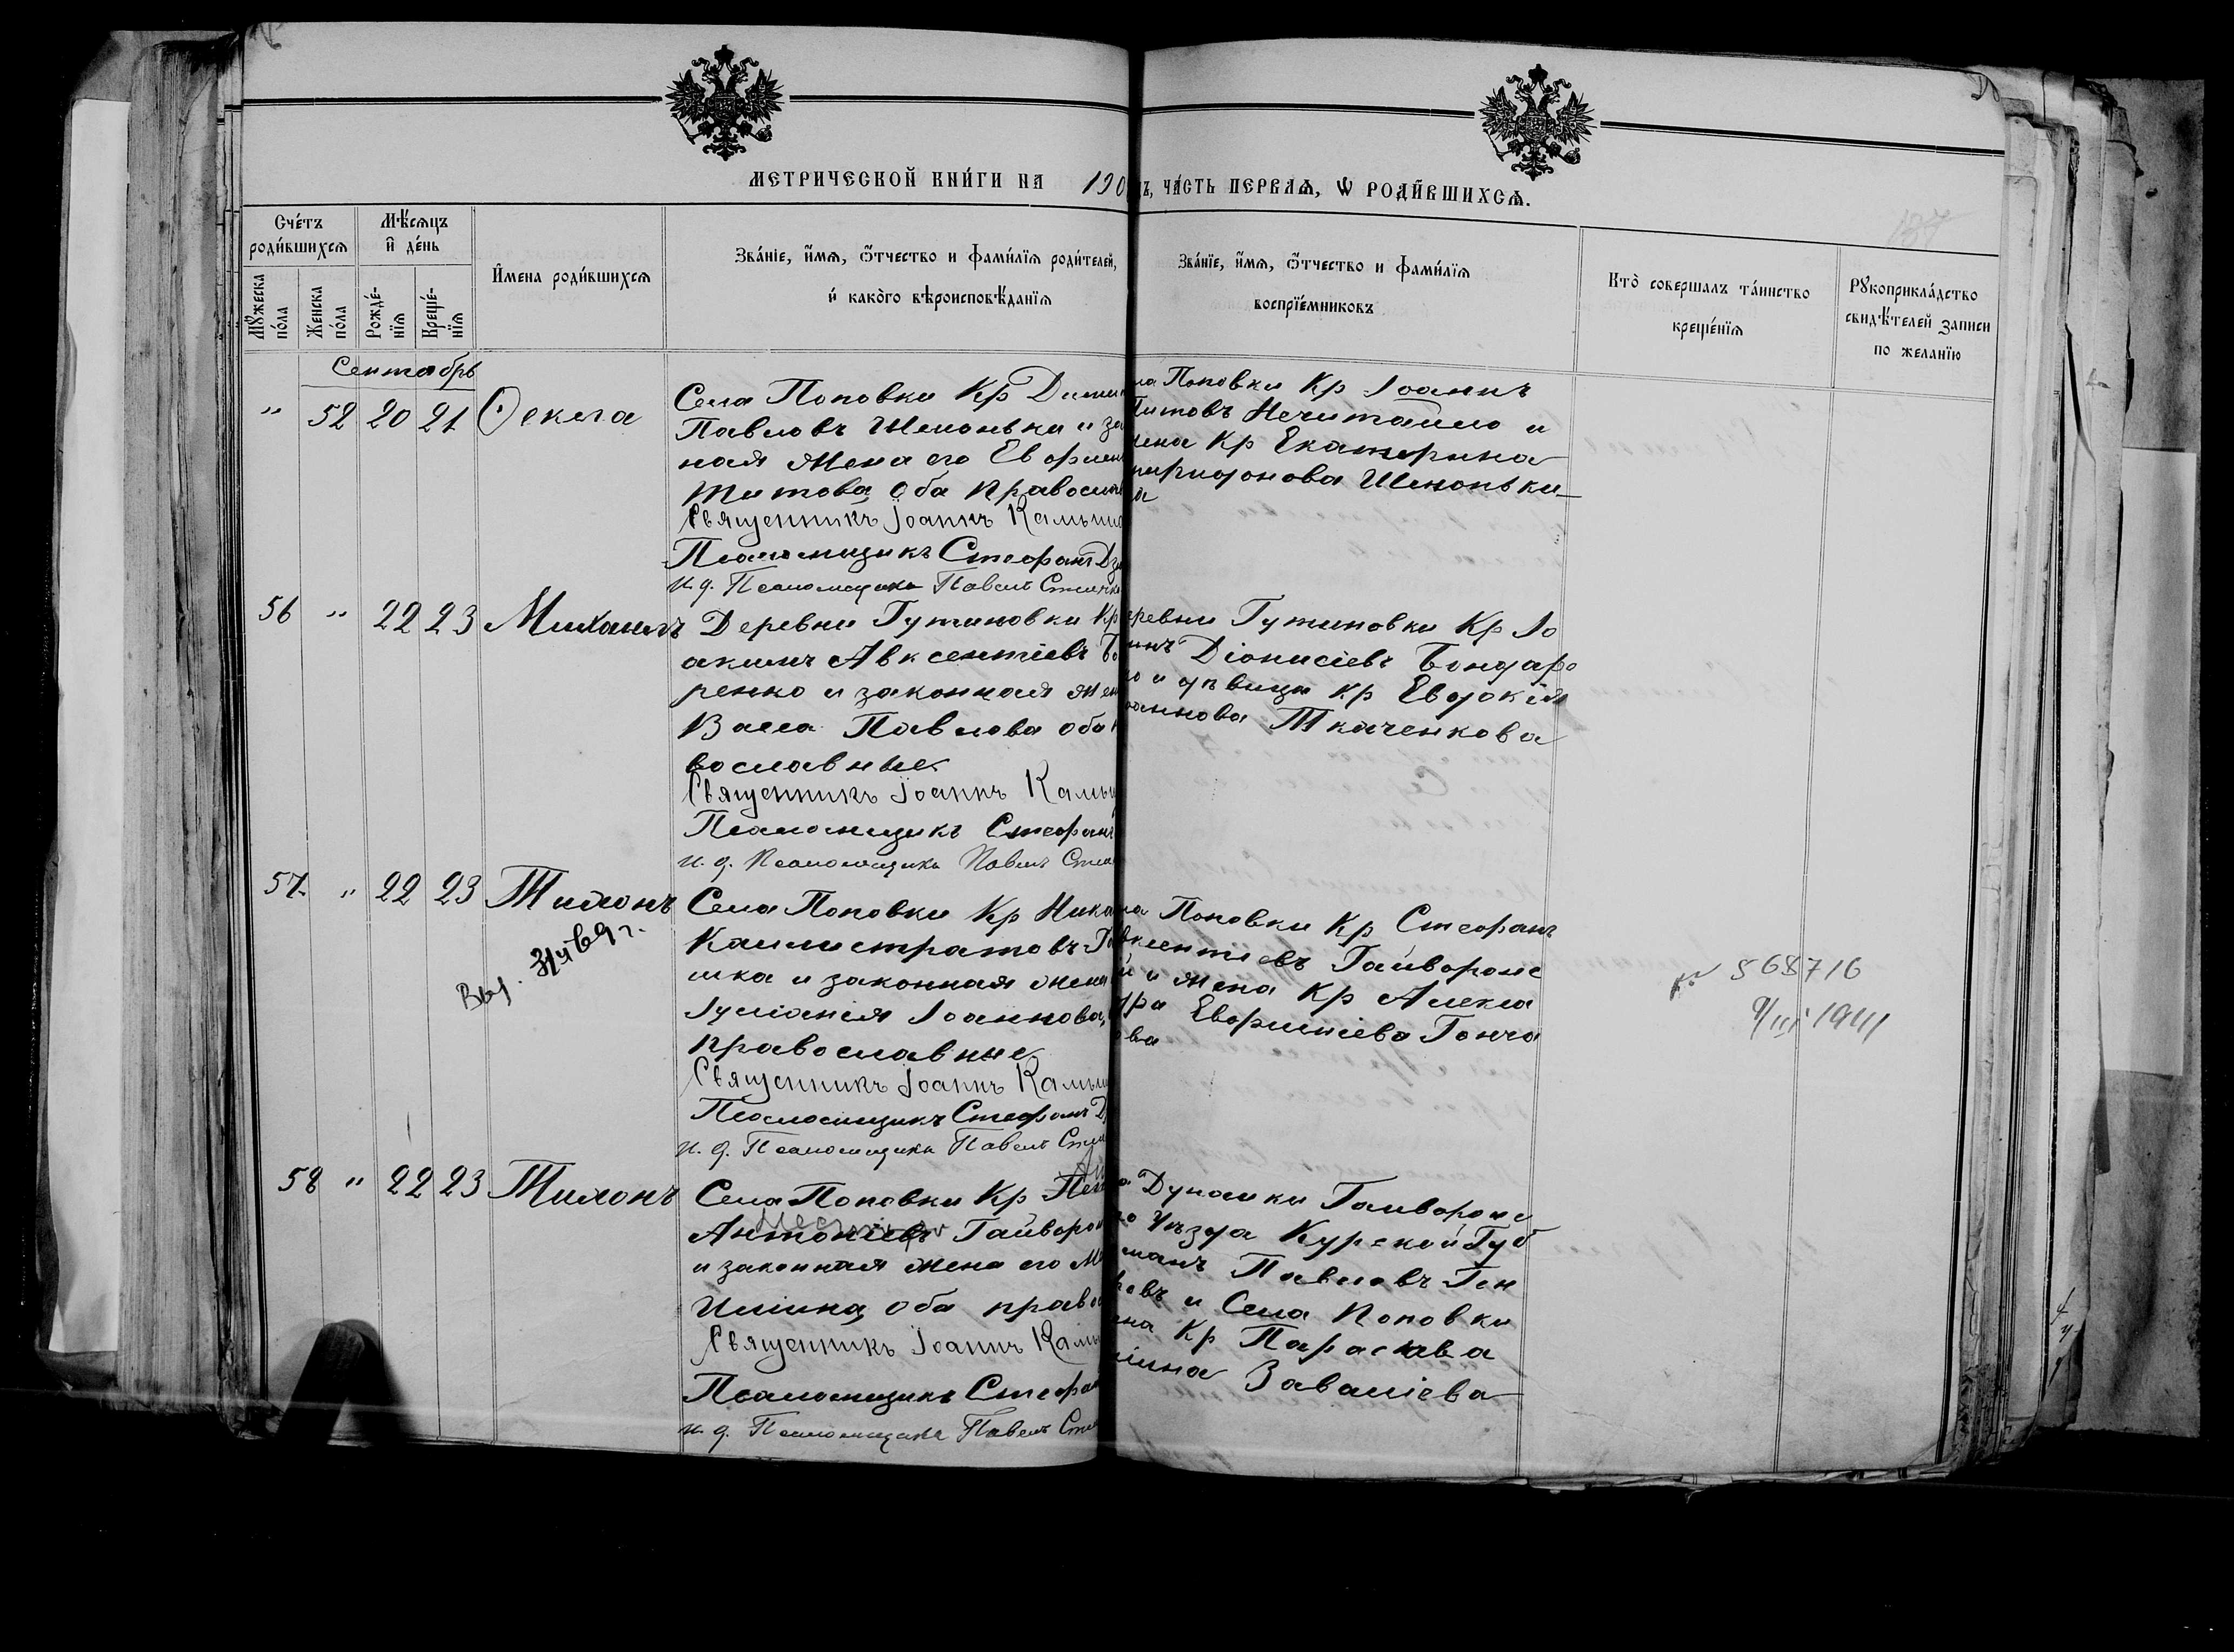 МЕТРИЧЕСКОЙ КНИ́ГИ НА 190
ъ, ЧА́СТЬ ПЕРВАѦ, Ѡ РОДИ́ВШИХСѦ.
Сче́тъ роди́вшихсѧ
Мѣ́сѧцъ и҆ де́нь
Мꙋ́жеска по́ла
Же́нска по́ла
Рожде́-нїѧ
Креще́-нїѧ
И҆мена роди́вшихсѧ
Зва́нїе, и҆́мѧ, ѻ҆́тчество и фами́лїѧ роди́телей,
и҆ како́го вѣроисповѣ́данїѧ
Зва́нїе, и҆́мѧ, ѻ҆́тчество и фами́лїѧ
воспрїе́мниковъ
Кто̀ соверша́лъ та́инство
креще́нїѧ
Рꙋкоприкла́дство
свидѣ́телей записи
по жела́нїю
Сентябрь
" 52 20 21 Ѳекла
Села Поповки Кр Дими
Павловъ Шепонька и за
ная жена его Евфим
Титова, оба правосл
Священникъ Іоаннъ Камы
Псаломщикъ Стефанъ
и. д. Псаломщика Павелъ
Поповки Кр Іоаннъ
Титовъ Нечитайло и
Кр Екатерина
пиридонова Шепоньки
56 " 22 23 Михаилъ
Деревни Гутиновки Кр
акимъ Авксентіевъ Бо
ренко и законная жен
Васса Павлова оба
вославные
Священникъ Іоаннъ Камы
Псаломщикъ Стефанъ
и. д. Псаломщика Павелъ
еревни Гутиновки Кр Іо
Діонисіевъ Бондаре
о и дѣвица Кр Евдокія
оаннова Ткаченкова
57 " 22 23 Тихонъ
Села Поповки Кр Ника
Каллистратовъ
шка и законная жена
Іуліанія Іоаннова,
православные
Священникъ Іоаннъ Камы
Псаломщикъ Стефанъ
и. д. Псаломщика Павелъ
Поповки Кр Стефанъ
вксентіевъ Гайворонс
й и жена Кр Алекса
дра Евфиміева Гонча
ова
568716
9/III 1941
58 " 22 23 Тихонъ
Села Поповки Кр
Антоніевъ Гайворон
и законная жена его М
Иліина, оба право
Священникъ Іоаннъ Камы
Псаломщикъ Стефан
и. д. Псаломщика Павелъ
Дунайки Гайворонс
го Уѣзда Курской Губ
Павловъ Гон
ровъ и Села Поповки
Кр Параскева
Иліина Завалієва